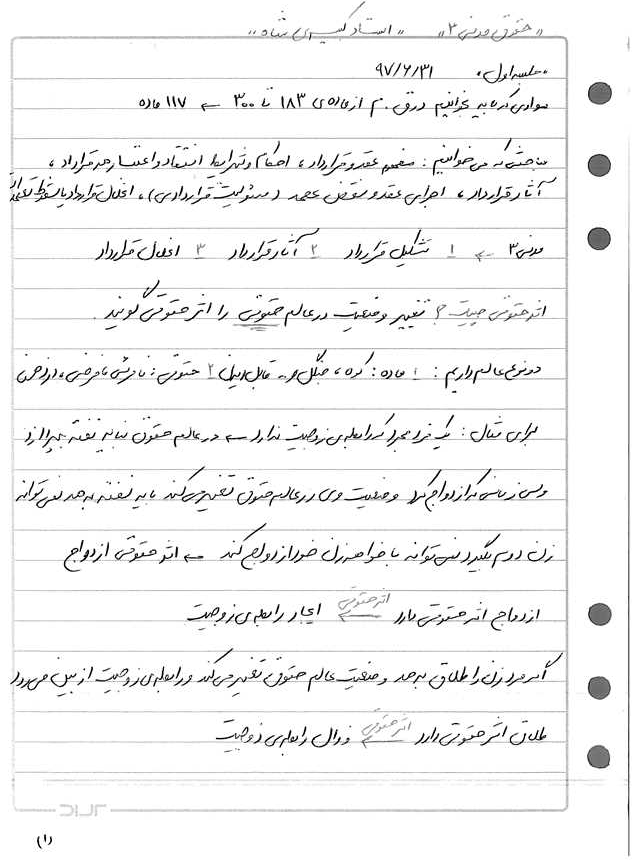 "حقوق مدنی ۳" "استاد شاه"
"جلسه اول" ۹۷/۶/۳۱
موادی که باید بخوانیم در ق.م از ماده‌ی ۱۸۳ تا ۳۰۰ ← ۱۱۷ ماده
مباحثی که می‌خوانیم: مفهوم عقد و قرارداد، احکام و شرایط انعقاد و اعتبار هر قرارداد،
آثار قرارداد، اجرای عقد و نقض عهد (مسئولیت قراردادی)، انحلال قرارداد یا سقوط تعهدات
مدنی ۳ ← ۱ تشکیل قرارداد ۲ آثار قرارداد ۳ انحلال قرارداد
اثر حقوقی چیست؟ تغییر وضعیت در عالم حقوقی را اثر حقوقی گویند.
دو نوع عالم داریم: ۱ ماده: کره، جنگل و... قابل دیدن ۲ حقوقی:
برای مثال: یک فرد مجرد که رابطه‌ی زوجیت ندارد ← در عالم حقوق نباید نفقه بپردازد
ولی زمانی که ازدواج کرد وضعیت وی در عالم حقوق تغییر می‌کند باید نفقه بدهد نمی‌تواند
زن دوم بگیرد نمی‌تواند با خواهر زن خود ازدواج کند ← اثر حقوقی ازدواج
ازدواج اثر حقوقی دارد اثر حقوقی ← ایجاد رابطه‌ی زوجیت
اگر مرد زن را طلاق بدهد وضعیت عالم حقوق تغییر می‌کند و رابطه‌ی زوجیت از بین می‌رود
طلاق اثر حقوقی دارد اثر حقوقی ← زوال رابطه‌ی زوجیت
(۱)